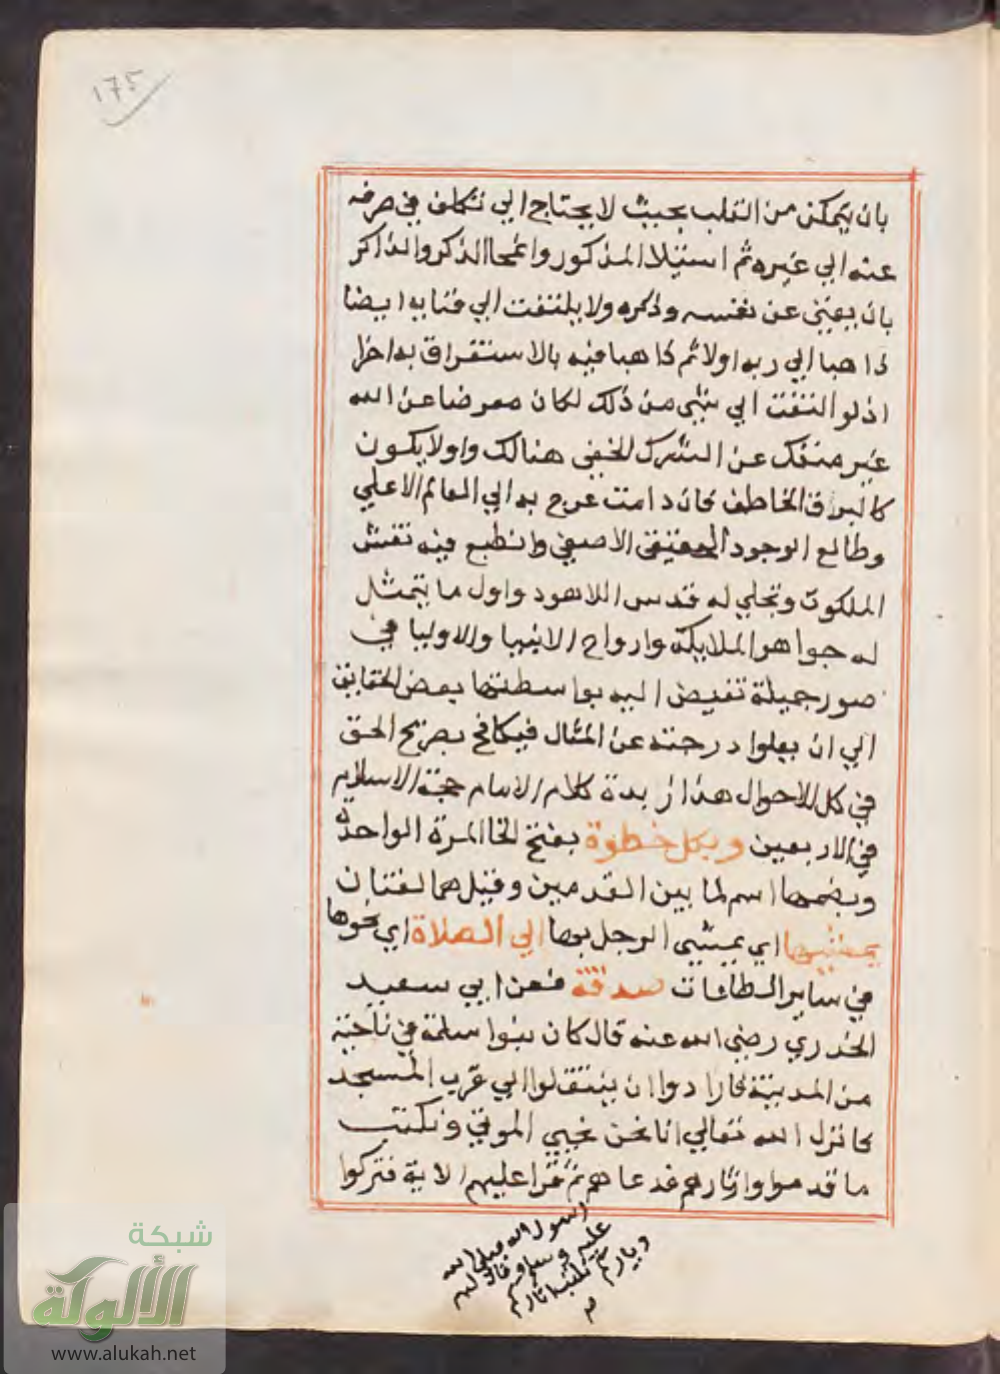 ١٢٥
بان يتمكن من القلب بحيث لا يحتاج الي تكلف في صرفه
عنه الي غيره ثم استيلا المذكور وانمحا الذكر والذاكر
بان يفني عن نفسه وذكره ولا يلتفت الي فنايه ايضا
ذاهبا الي ربه اولا ثم ذاهبا فيه بالاستغراق به اخرا
اذ لو التفت الي شي من ذلك لكان معرضا عن الله
غير منفك عن الشرك الخفي هنالك واولا يكون
كالبرق الخاطف فان دامت عرج به الي العالم الاعلي
وطالع الوجود الحقيقي الاصفي وانطبع فيه نقش
الملكوت وتجلي له قدس اللاهوت واول ما يتمثل
له جواهر الملايكة وارواح الانبيا والاوليا في
صور جميلة تفيض اليه بواسطتها بعض الحقايق
الي ان يعلوا درجته عن المثال فيكافح بصريح الحق
في كل الاحوال هذا زبدة كلام الامام حجة الاسلام
في الاربعين وبكل خطوة بفتح الخا المرة الواحدة
وبضمها اسم لما بين القدمين وقيل هما لغتان
يمشيها اي يمشي الرجل بها الي الصلاة اي نحوها
في ساير الطاعات صدقة فعن ابي سعيد
الخدري رضي الله عنه قال كان بنوا سلمة في ناحية
من المدينة فارادوا ان ينتقلوا الي قرب المسجد
فانزل الله تعالي انا نحن نحيي الموتي ونكتب
ما قدموا واثارهم فدعاهم ثم قرا عليهم الاية فتركوا
رسول الله صلي الله
عليه وسلم وقال لهم
دياركم تكتب اثاركم
شبكة
الألوكة
www.alukah.net